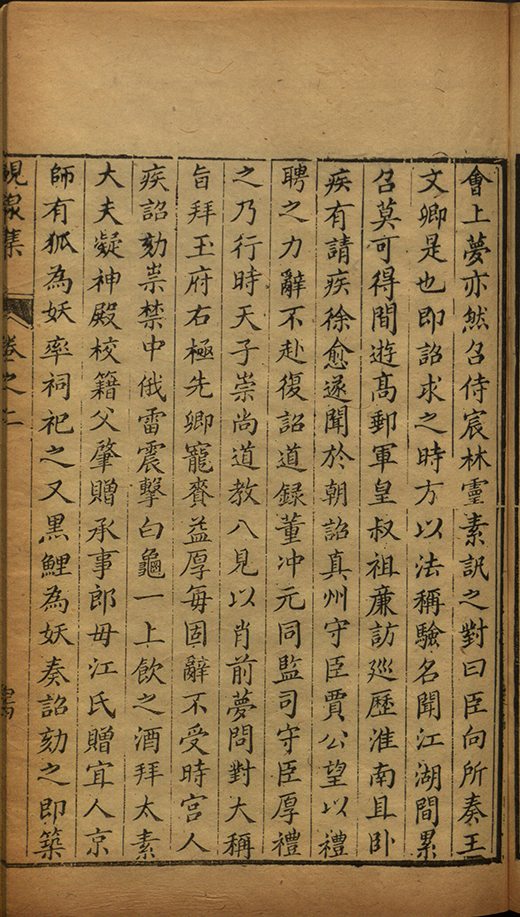 會上夢亦然召侍宸林靈素訊之對曰臣向所奏王
文卿是也即詔求之時方以法稱驗名聞江湖間累
召莫可得間遊高郵軍皇叔祖廉訪廵歷淮南且卧
疾有請疾徐愈遂聞於朝詔真州守臣賈公望以禮
聘之力辭不赴復詔道録董冲元同監司守臣厚禮
之乃行時天子崇尚道教八見以肖前夢問對大稱
旨拜玉府右極先卿寵賚益厚每固辭不受時宫人
疾詔劾祟禁中俄雷震擊白龜一上飲之酒拜太素
大夫凝神殿校籍父肇贈承事郎毋江氏贈宜人京
師有狐為妖率祠祀之又黒鯉為妖奏詔劾之即築
集
卷之二